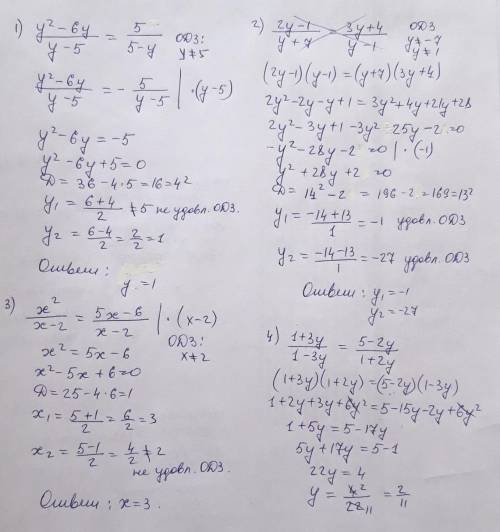 1) (y² − 6y)/(y − 5) = 5/(5 − y)   ОДЗ: y ≠ 5
(y² − 6y)/(y − 5) = − 5/(y − 5) | · (y − 5)
y² − 6y = −5
y² − 6y + 5 = 0
D = 36 − 4·5 = 16 = 4²
y₁ = (6+4)/2 ≠ 5 не удовл. ОДЗ.
y₂ = (6−4)/2 = 2/2 = 1
Ответ:
y = 1
2) (2y − 1)/(y + 7) = (3y + 4)/(y − 1)   ОДЗ y ≠ −7 y ≠ 1
(2y−1)(y−1) = (y+7)(3y+4)
2y² − 2y − y + 1 = 3y² + 4y + 21y + 28
2y² − 3y + 1 − 3y² − 25y − 2 = 0
−y² − 28y − 2 = 0 | · (−1)
y² + 28y + 2 = 0
D = 14² − 2 = 196 − 2 = 169 = 13²
y₁ = (−14+13)/1 = −1 удовл. ОДЗ
y₂ = (−14−13)/1 = −27 удовл. ОДЗ
Ответ: y₁ = −1
y₂ = −27
3) x²/(x − 2) = (5x − 6)/(x − 2) | · (x − 2)
ОДЗ: x ≠ 2
x² = 5x − 6
x² − 5x + 6 = 0
D = 25 − 4·6 = 1
x₁ = (5+1)/2 = 6/2 = 3
x₂ = (5−1)/2 = 4/2 ≠ 2
не удовл. ОДЗ.
Ответ: x = 3.
4) (1 + 3y)/(1 − 3y) = (5 − 2y)/(1 + 2y)
(1+3y)(1+2y) = (5−2y)(1−3y)
1 + 2y + 3y + 6y² = 5 − 15y − 2y + 6y²
1 + 5y = 5 − 17y
5y + 17y = 5 − 1
22y = 4
y = 4 2/22 11 = 2/11